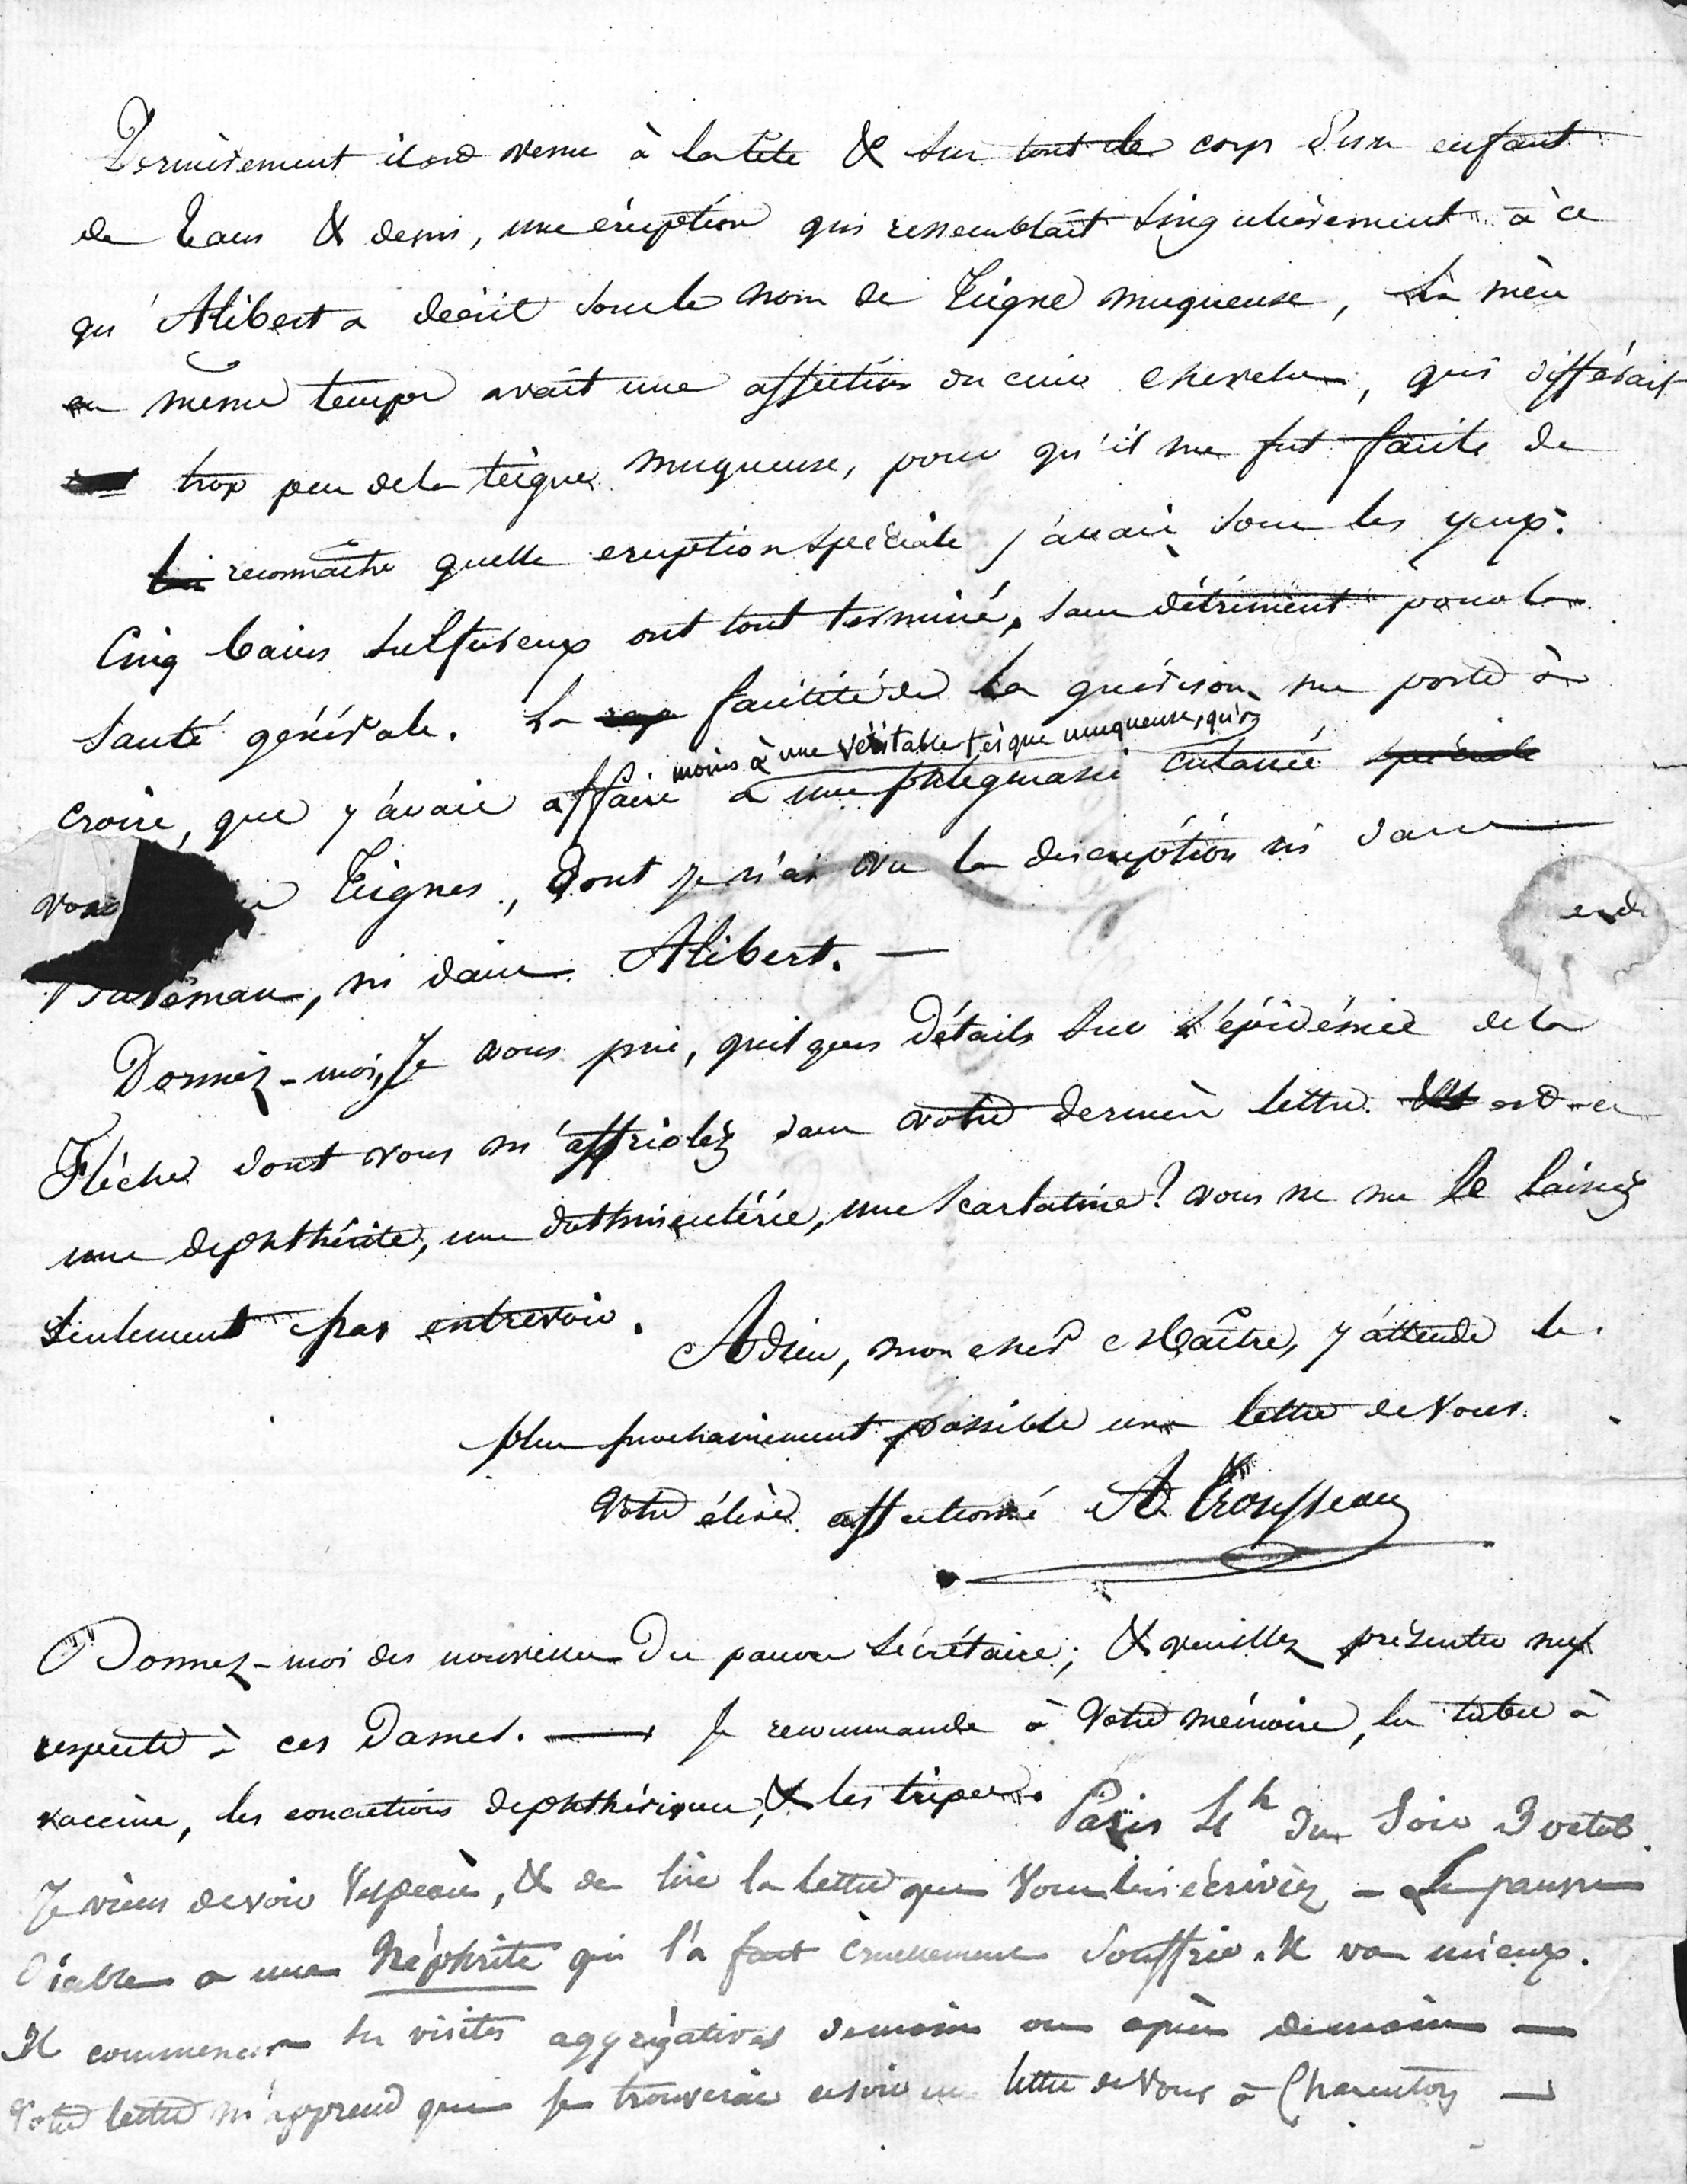 Dernièrement il est venu à la tête & sur tout le corps d'un enfant
de 2 ans & demi, une éruption qui ressemblait singulièrement à ce
qu'Alibert a décrit sous le nom de Teigne muqueuse, la mère
en même temps avait une affection du cuir chevelu, qui différait
trop peu de la teigne muqueuse, pour qu'il me fut facile de
reconnaître quelle eruption spéciale j'avais sous les yeux.
Cinq bains sulfureux ont tout terminé, sans détriment pour la
santé générale. La facilité de la guérison me porte à
moins à une véritable teigne muqueuse, qu'
croire, que j'avais affaire à une phlegmasie cutanée spéciale
Teignes, dont je n'ai vu la description ni dans
Bateman, ni dans Alibert. —
Donnez-moi, Je vous prie, quelques Détails sur l'épidémie de la
Flèche dont vous m'affriolez dans votre dernière lettre. est-ce
une diphthérite, une dothinentérie, une scarlatine? vous ne me le laissez
seulement pas entrevoir.
Adieu, mon cher Maître, j'attends le
plus prochainement possible une lettre de vous.
Votre élève affectionné A Trousseau
Donnez-moi des nouvelles Du pauvre Secrétaire; & veuillez présenter mes
respects à ces Dames. — Je recommande à Votre mémoire, les tubes à
vaccine, les concrétions diphthériques, & les tripes.
Paris 4h du Soir 3 octob.
Je viens de voir Velpeau, & de lire la lettre que Vous lui écriviez — Le pauvre
Diable a une Néphrite qui l'a fait cruellement Souffrir. Il va mieux.
Il commencera ses visites aggrégatives demain ou après demain —
Votre lettre m'apprend que je trouverai ce soir une lettre de Vous à Charenton —